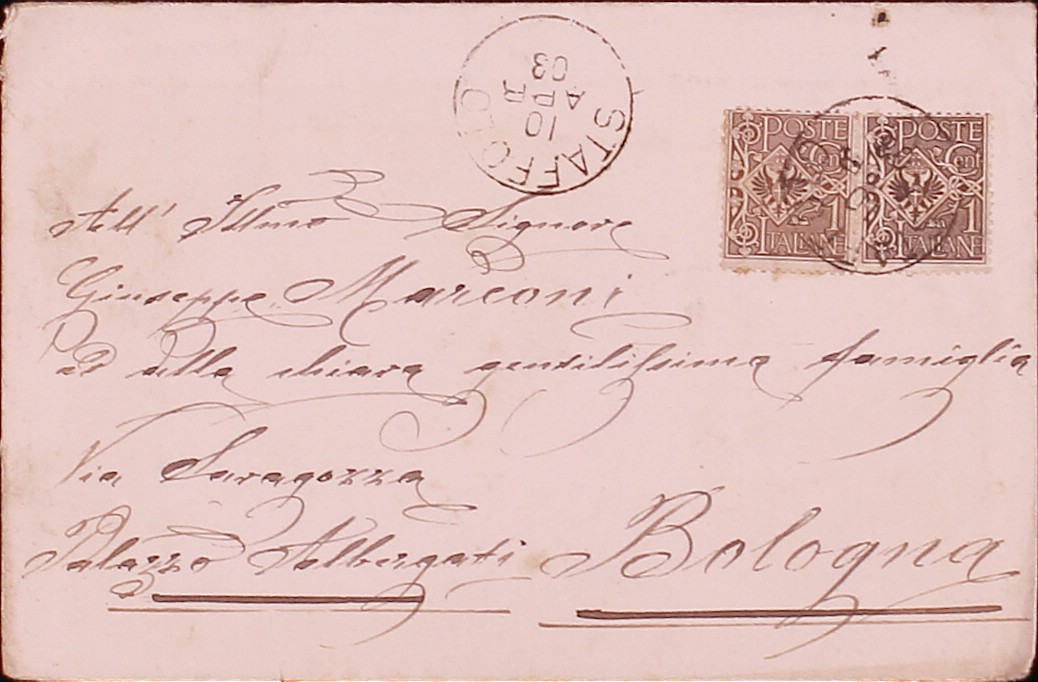 STAFFOLO
10
APR
03
POSTE Cent 1 ITALIANE
POSTE Cent 1 ITALIANE
All' Illmo Signore
Giuseppe Marconi
ed alla chiara gentilissima famiglia
Via Saragozza
Palazzo Albergati Bologna